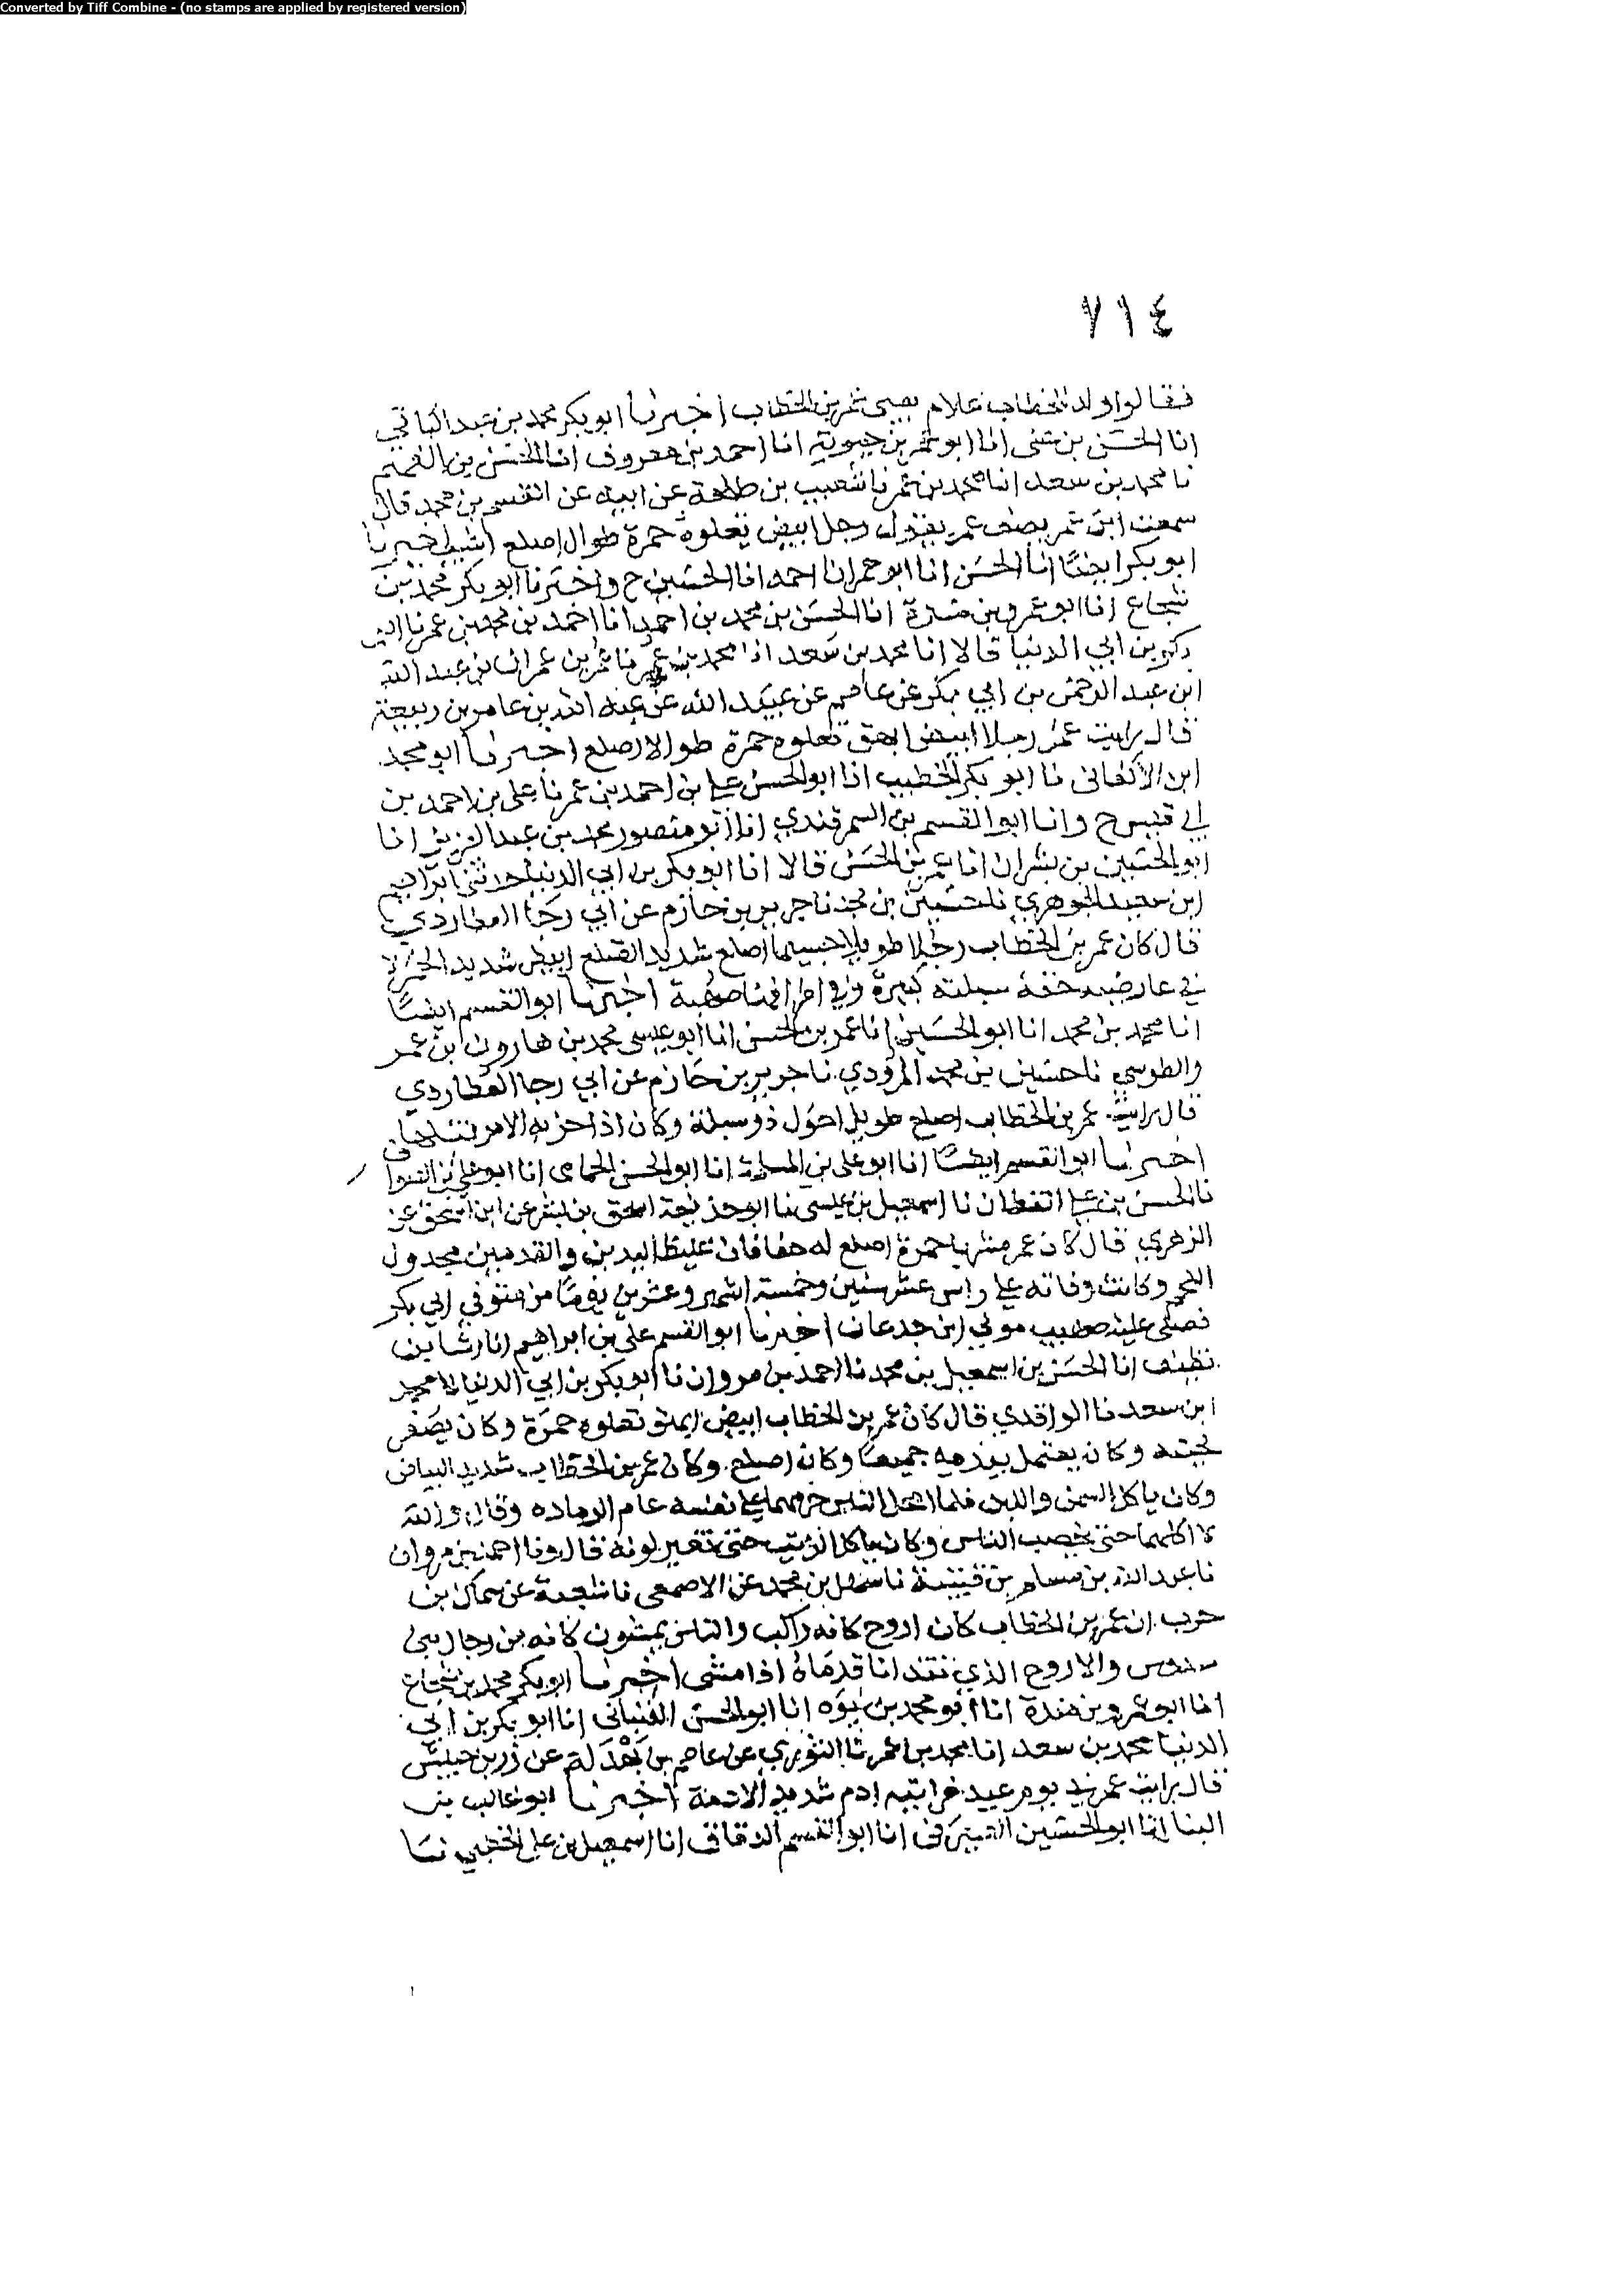 Converted by Tiff Combine - (no stamps are applied by registered version)
٧١٤
فقالوا ولد للخطاب غلام يعني عمر بن الخطاب اخبرنا ابو بكر محمد بن عبد الباقي
انا الحسن بن علي انا ابو عمر بن حيوية انا احمد بن معروف انا الحسين بن الفهم
نا محمد بن سعد انا محمد بن عمر نا شعيب بن طلحة عن ابيه عن القسم بن محمد قال
سمعت ابن عمر يصف عمر يقول رجل ابيض تعلوه حمرة طوال اصلع اشيب اخبرنا
ابو بكر ايضا انا الحسن انا ابو عمر انا احمد انا الحسين ح واخبرنا ابو بكر محمد بن
شجاع انا ابو عمرو بن مندة انا الحسن بن محمد بن احمد انا احمد بن محمد بن عمر نا ابو
بكر بن ابي الدنيا قالا انا محمد بن سعد انا محمد بن عمر نا عمر بن عمران بن عبد الله
ابن عبد الرحمن بن ابي بكر عن عاصم بن عبيد الله عن عبد الله بن عامر بن ربيعة
قال رايت عمر رجلا ابيض امهق تعلوه حمرة طوالا اصلع اخبرنا ابو محمد
ابن الاكفاني نا ابو بكر الخطيب انا ابو الحسن علي بن احمد بن عمر نا علي بن احمد بن
ابي قيس ح وانا ابو القسم بن السمرقندي انا ابو منصور محمد بن عبد العزيز انا
ابو الحسين بن بشران انا عمر بن الحسن قالا انا ابو بكر بن ابي الدنيا حدثني ابراهيم
ابن سعيد الجوهري نا حسين بن محمد نا جرير بن حازم عن ابي رجا العطاردي
قال كان عمر بن الخطاب رجلا طويلا جسيما اصلع شديد الصلع ابيض شديد الحمرة
في عارضيه خفة سبلته كثيرة وفي اطرافها صهبة اخبرنا ابو القسم ايضا
انا محمد بن محمد انا ابو الحسين انا عمر بن الحسن انا ابو عيسى محمد بن هارون ابن عمر
والطوسي نا حسين بن محمد المروذي نا جرير بن حازم عن ابي رجا العطاردي
قال رايت عمر بن الخطاب اصلع طويل احول ذو سبلة وكان اذا حزبه الامر فتلها
اخبرنا ابو القسم ايضا انا ابو علي بن المسلمة انا ابو الحسن الحمامي انا ابو علي بن الصواف
نا الحسن بن علي القطان نا اسمعيل بن عيسى نا ابو حذيفة اسحق بن بشر عن ابن اسحق عن
الزهري قال كان عمر مشربا حمرة اصلع له حفافان غليظ اليدين والقدمين مجدول
اللحم وكانت وفاته على راس عشر سنين وخمسة اشهر وعشرين يوما من متوفي ابي بكر
فصلى عليه صهيب مولي ابن جدعان اخبرنا ابو القسم علي بن ابراهيم انا رشا بن
نظيف انا الحسن بن اسمعيل بن محمد نا احمد بن مروان نا ابو بكر بن ابي الدنيا نا محمد
ابن سعد نا الواقدي قال كان عمر بن الخطاب ابيض امهق تعلوه حمرة وكان يصفر
لحيته وكان يعتمل بيديه جميعا وكان اصلع وكان عمر بن الخطاب شديد البياض
وكان ياكل السمن واللبن فلما امحل الناس حرمهما علي نفسه عام الرماده وقال والله
لا اكلهما حتى يخصب الناس وكان ياكل الزيت حتى تغير لونه قال ونا احمد بن مروان
نا عبد الله بن مسلم بن قتيبة نا سهل بن محمد عن الاصمعي نا شعبة عن سماك بن
حرب ان عمر بن الخطاب كان اروح كانه راكب والناس يمشون كانه من رجال بني
سدوس والاروح الذي تتدانا قدماه اذا مشى اخبرنا ابو بكر محمد بن شجاع
انا ابو عمرو بن مندة انا ابو محمد بن يوه انا ابو الحسن اللنباني انا ابو بكر بن ابي
الدنيا محمد بن سعد انا محمد بن عمر نا الثوري عن عاصم بن بهدلة عن زر بن حبيش
قال رايت عمر يوم عيد فرايته ادم شديد الادمة اخبرنا ابو غالب بن
البنا انا ابو الحسين انا ابو القسم الدقاق انا اسمعيل بن علي الخطبي نا